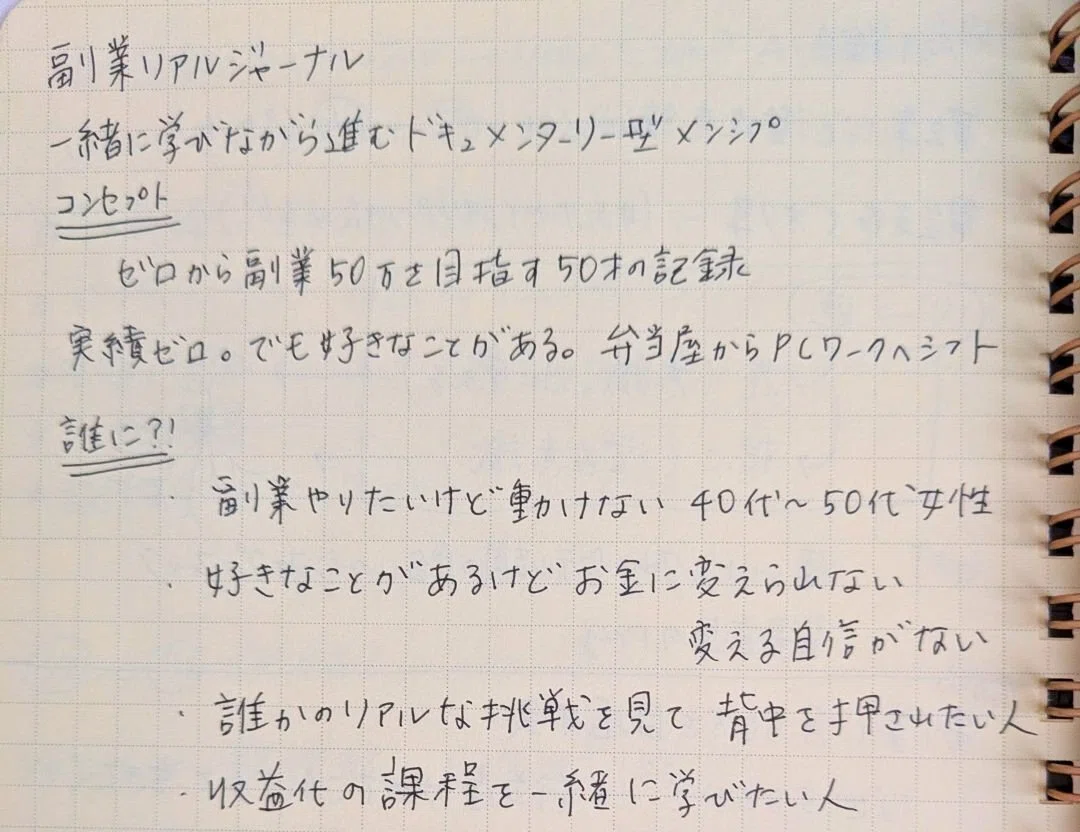 副業リアルジャーナル
一緒に学びながら進むドキュメンタリー型メンシプ
コンセプト
ゼロから副業50万を目指す50才の記録
実績ゼロ。でも好きなことがある。弁当屋からPCワークへシフト
誰に?!
・副業やりたいけど動かけない 40代〜50代女性
・好きなことがあるけどお金に変えられない
変える自信がない
・誰かのリアルな挑戦を見て 背中を押されたい人
・収益化の課程を一緒に学びたい人